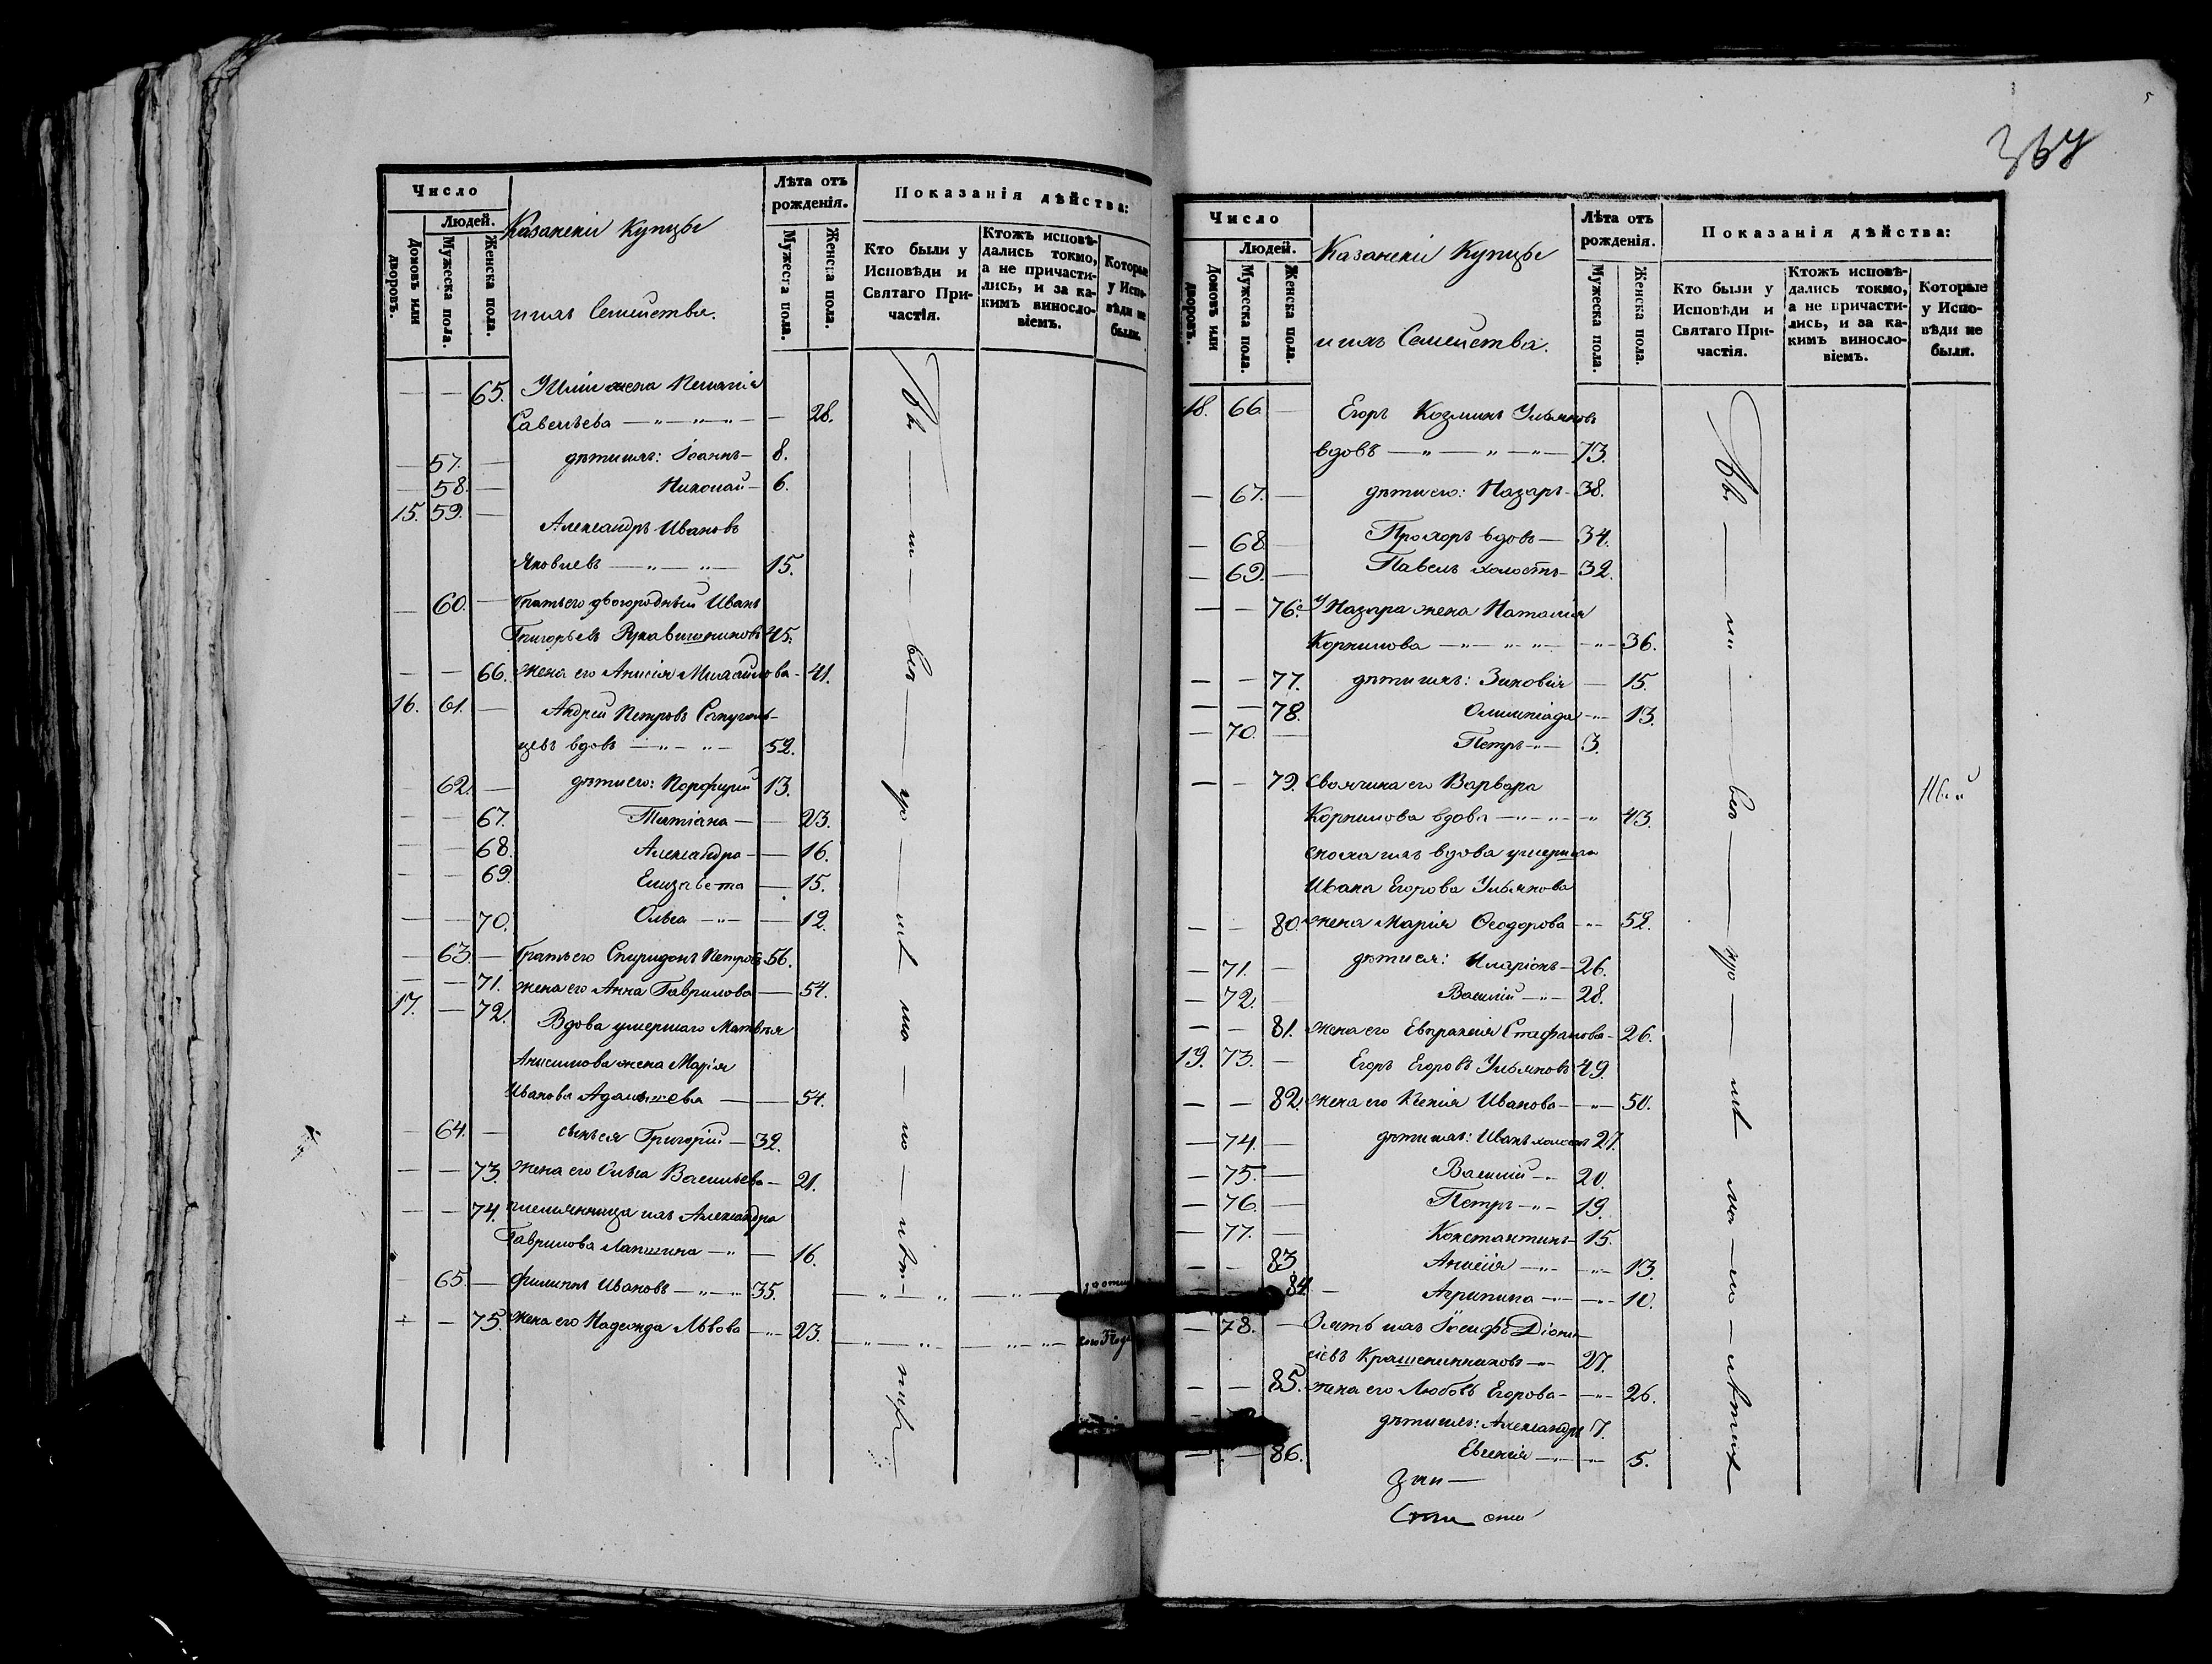 Число
Людей.
Домовъ или дворовъ.
Мужеска пола.
Женска пола.
Казанскіи Купцы
и ихъ Семейства.
Лѣта отъ рожденія.
Мужеска пола.
Женска пола.
Показанія дѣйства:
Кто были у Исповѣди и Святаго Причастія.
Ктожъ исповѣдались токмо, а не причастились, и за какимъ винословіемъ.
Которые у Исповѣди не были.
— — 65. жена
Савельева — „ — „ — „ — — 28.
— 57. — дѣти ихъ: Іоаннъ — 8.
— 58. — Николай — 6.
15. 59. — Александръ Ивановъ
Яковлевъ — „ — „ — 15.
— 60. — братъ его двоюродный Иванъ
Григорьевъ Рукавишниковъ 45.
— — 66. жена его Анисія Михайлова - 41.
16. 61. — Андрей Петровъ
вдовъ — „ — „ — 52.
— 62. — дѣти его: Порфирій 13.
— — 67. Татіана — — 23.
— — 68. Александра — — 16.
— — 69. Елизавета — 15.
— — 70. Ольга — „ — — 12.
— 63. — братъ его Спиридонъ Петровъ 56.
— — 71. жена его Анна Гаврилова — 54.
17. — 72. Вдова умершаго Матвѣя
Анисимова жена Марія
Иванова — — 54.
— 64. — сынъ ея Григорій — 32.
— — 73. жена его Ольга Васильева — 21.
— — 74. племянница ихъ Александра
Гаврилова Лапшина — „ — 16.
— 65. — Филиппъ Ивановъ — „ — „ 35.
— 75. жена его Надежда Львова — „ — 23.
367
Число
Людей.
Домовъ или дворовъ.
Мужеска пола.
Женска пола.
Казанскіи Купцы
и ихъ Семейства.
Лѣта отъ рожденія.
Мужеска пола.
Женска пола.
Показанія дѣйства:
Кто были у Исповѣди и Святаго Причастія.
Ктожъ исповѣдались токмо, а не причастились, и за какимъ винословіемъ.
Которые у Исповѣди не были.
18. 66 — Егоръ Козминъ Ульяновъ
вдовъ — „ — „ — „ — 73.
— 67. — дѣти его: Назаръ - 38.
— 68. — Прохоръ вдовъ — 34.
— 69. — Павелъ холостъ - 32.
— — 76. У Назара жена Наталія
Корнилова — „ — „ — „ — 36.
— — 77. дѣти ихъ: Зиновія — 15.
— — 78. Олимпіада — „ — 13.
— 70. — Петръ — „ — 3.
— — 79. Своячина его Варвара
Корнилова вдова — „ — „ — „ 43.
сноха ихъ вдова умершаго
Ивана Егорова Ульянова
— — 80. жена Марія Ѳеодорова — „ — 52.
— 71. — дѣти ея: Иларіонъ — 26.
— 72. — Василій — „ — 28.
— — 81. жена его Евпраксія Стефанова - 26.
19. 73. — Егоръ Егоровъ Ульяновъ 49.
— — 82. жена его Ксенія Иванова — „ — 50.
— 74. — дѣти ихъ: Иванъ холостъ 27.
— 75. — Василій — „ 20.
— 76. — Петръ — „ — 19.
— 77. — Константинъ — 15.
— — 83. Анисія — „ — — „ — 13.
84. — Агрипина — „ — — „ — 10.
— 78. — Зять ихъ Іосифъ Діони-
сіевъ Крашенинниковъ — „ — 27.
— — 85. жена его Любовь Егорова — — „ — 26.
дѣти ихъ: Александръ 7.
— — 86. Евгенія — „ — 5.